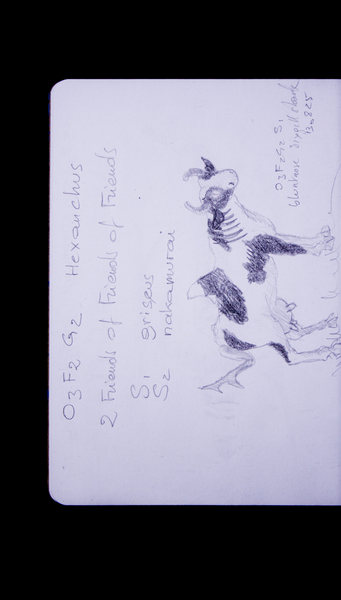 O3 F2 G2 Hexanchus
2 Friends of Friends of Friends
S1 griseus
S2 nakamurai
O3 F2 G2 S1
bluntnose sixgill shark